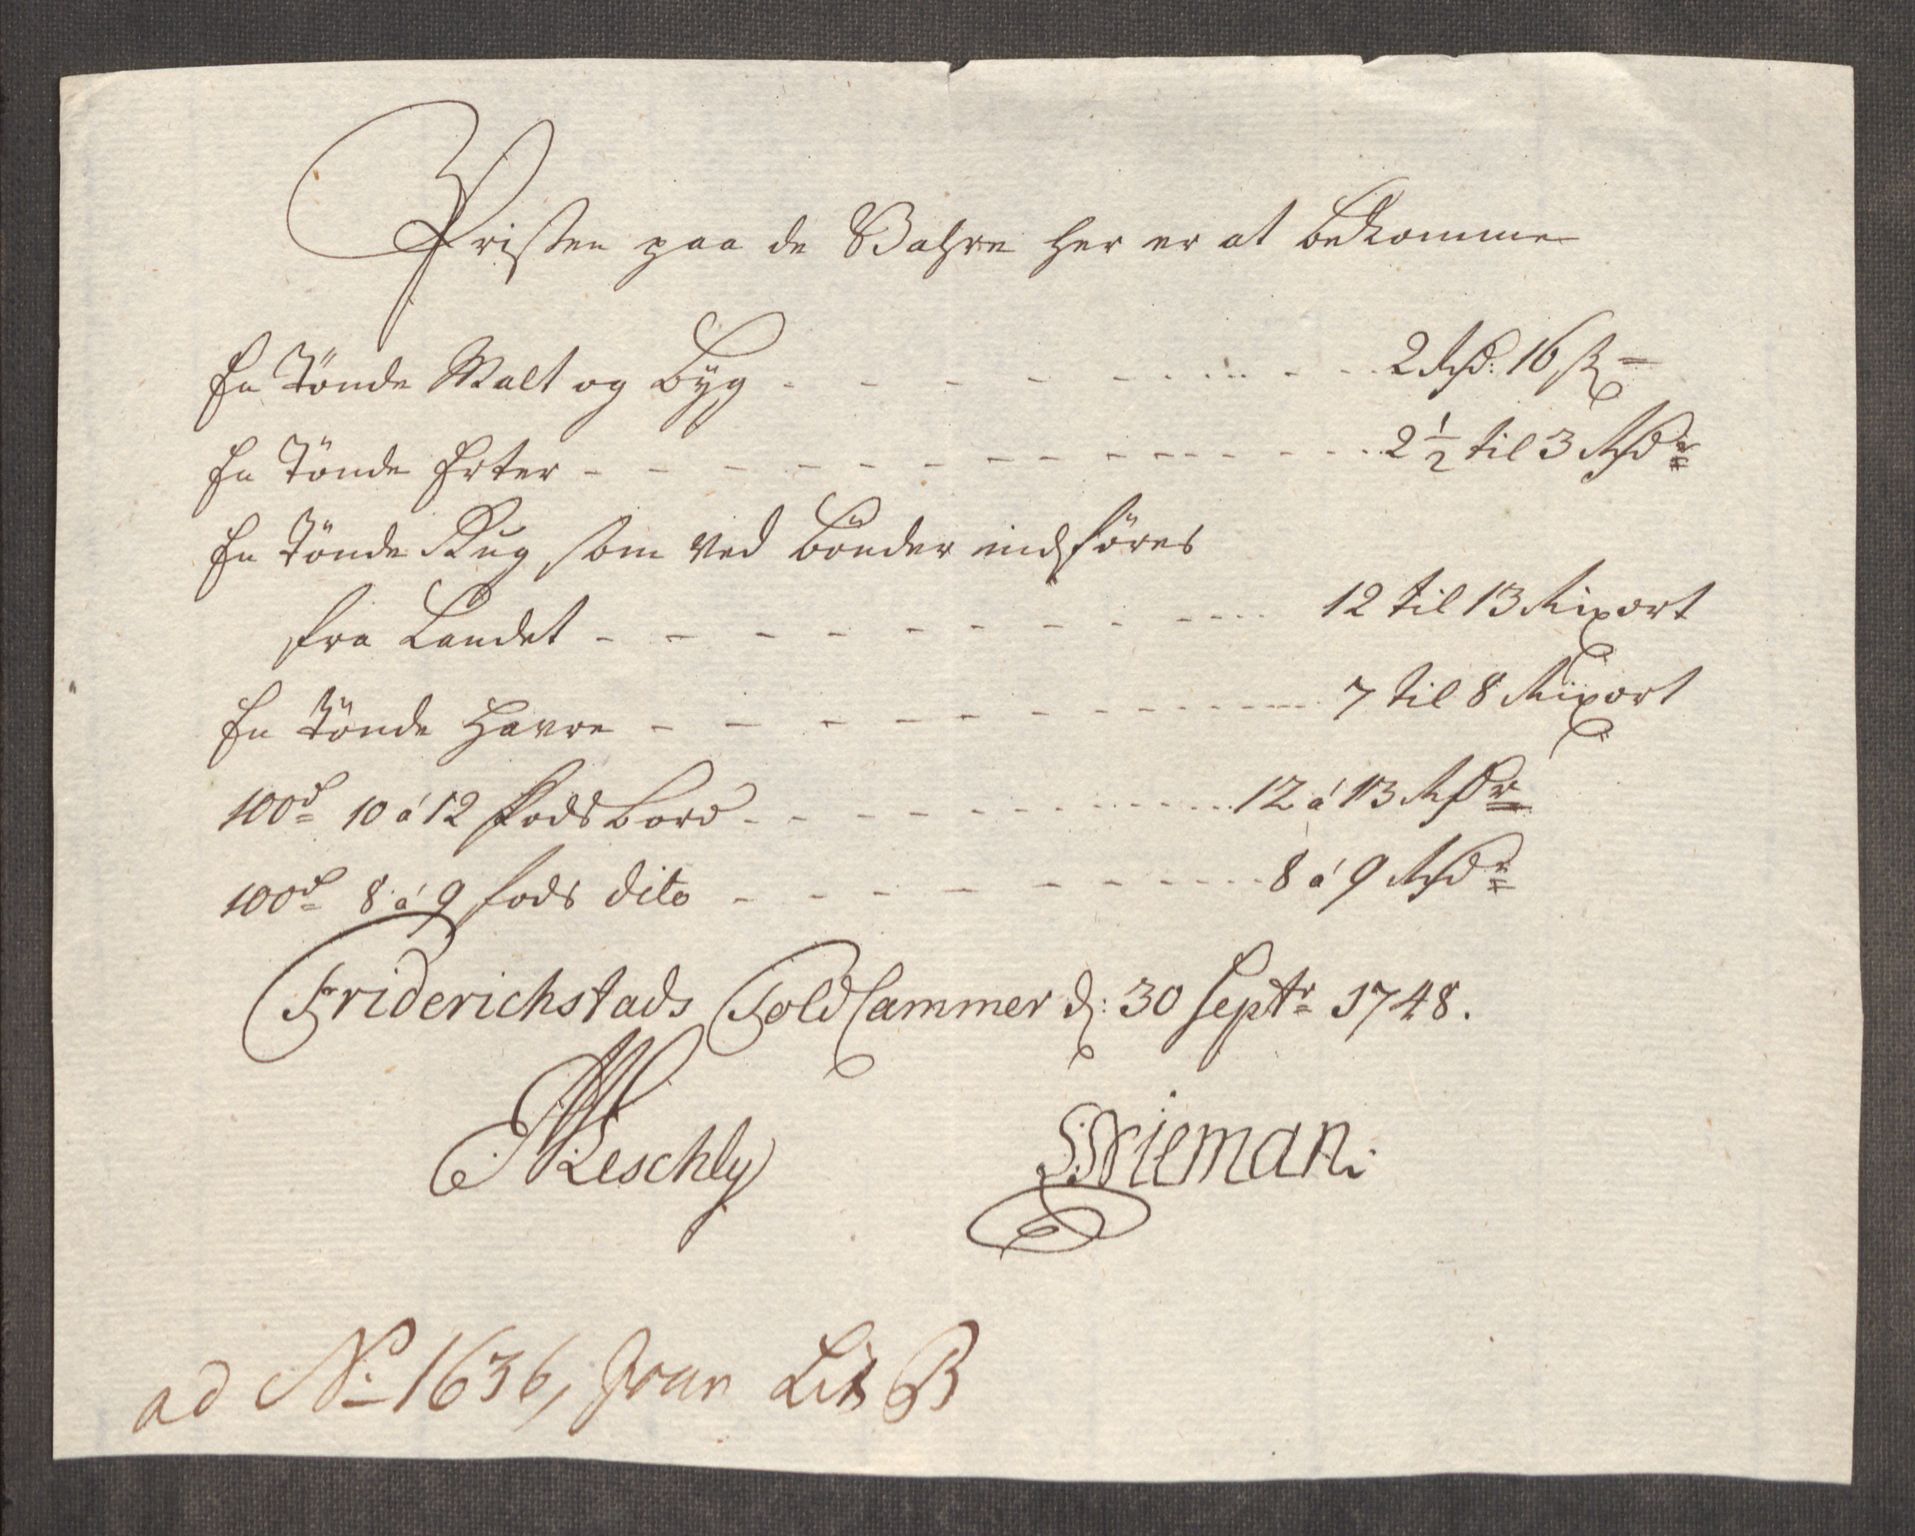 Pristen paa de Vahre her er at bekomme
En Tönde Malt og Byg - - - - - 2 Rd. 16 s
En Tönde Erter - - - - - 2 1/2 til 3 Rdr
En Tönde Rug som ved bönder indföres
fra Landet - - - - - 12 til 13 Rixort
En Tönde Havre - - - - - 7 til 8 Rixort
100d 10 á 12 fods bord - - - - - 12 á 13 Rdr
100d 8 á 9 fods dito - - - - - 8 á 9 Rdr
Friderichstads Told Cammer d: 30 Septr 1748.
Weschly Nieman.
ad No 1636, Lit B